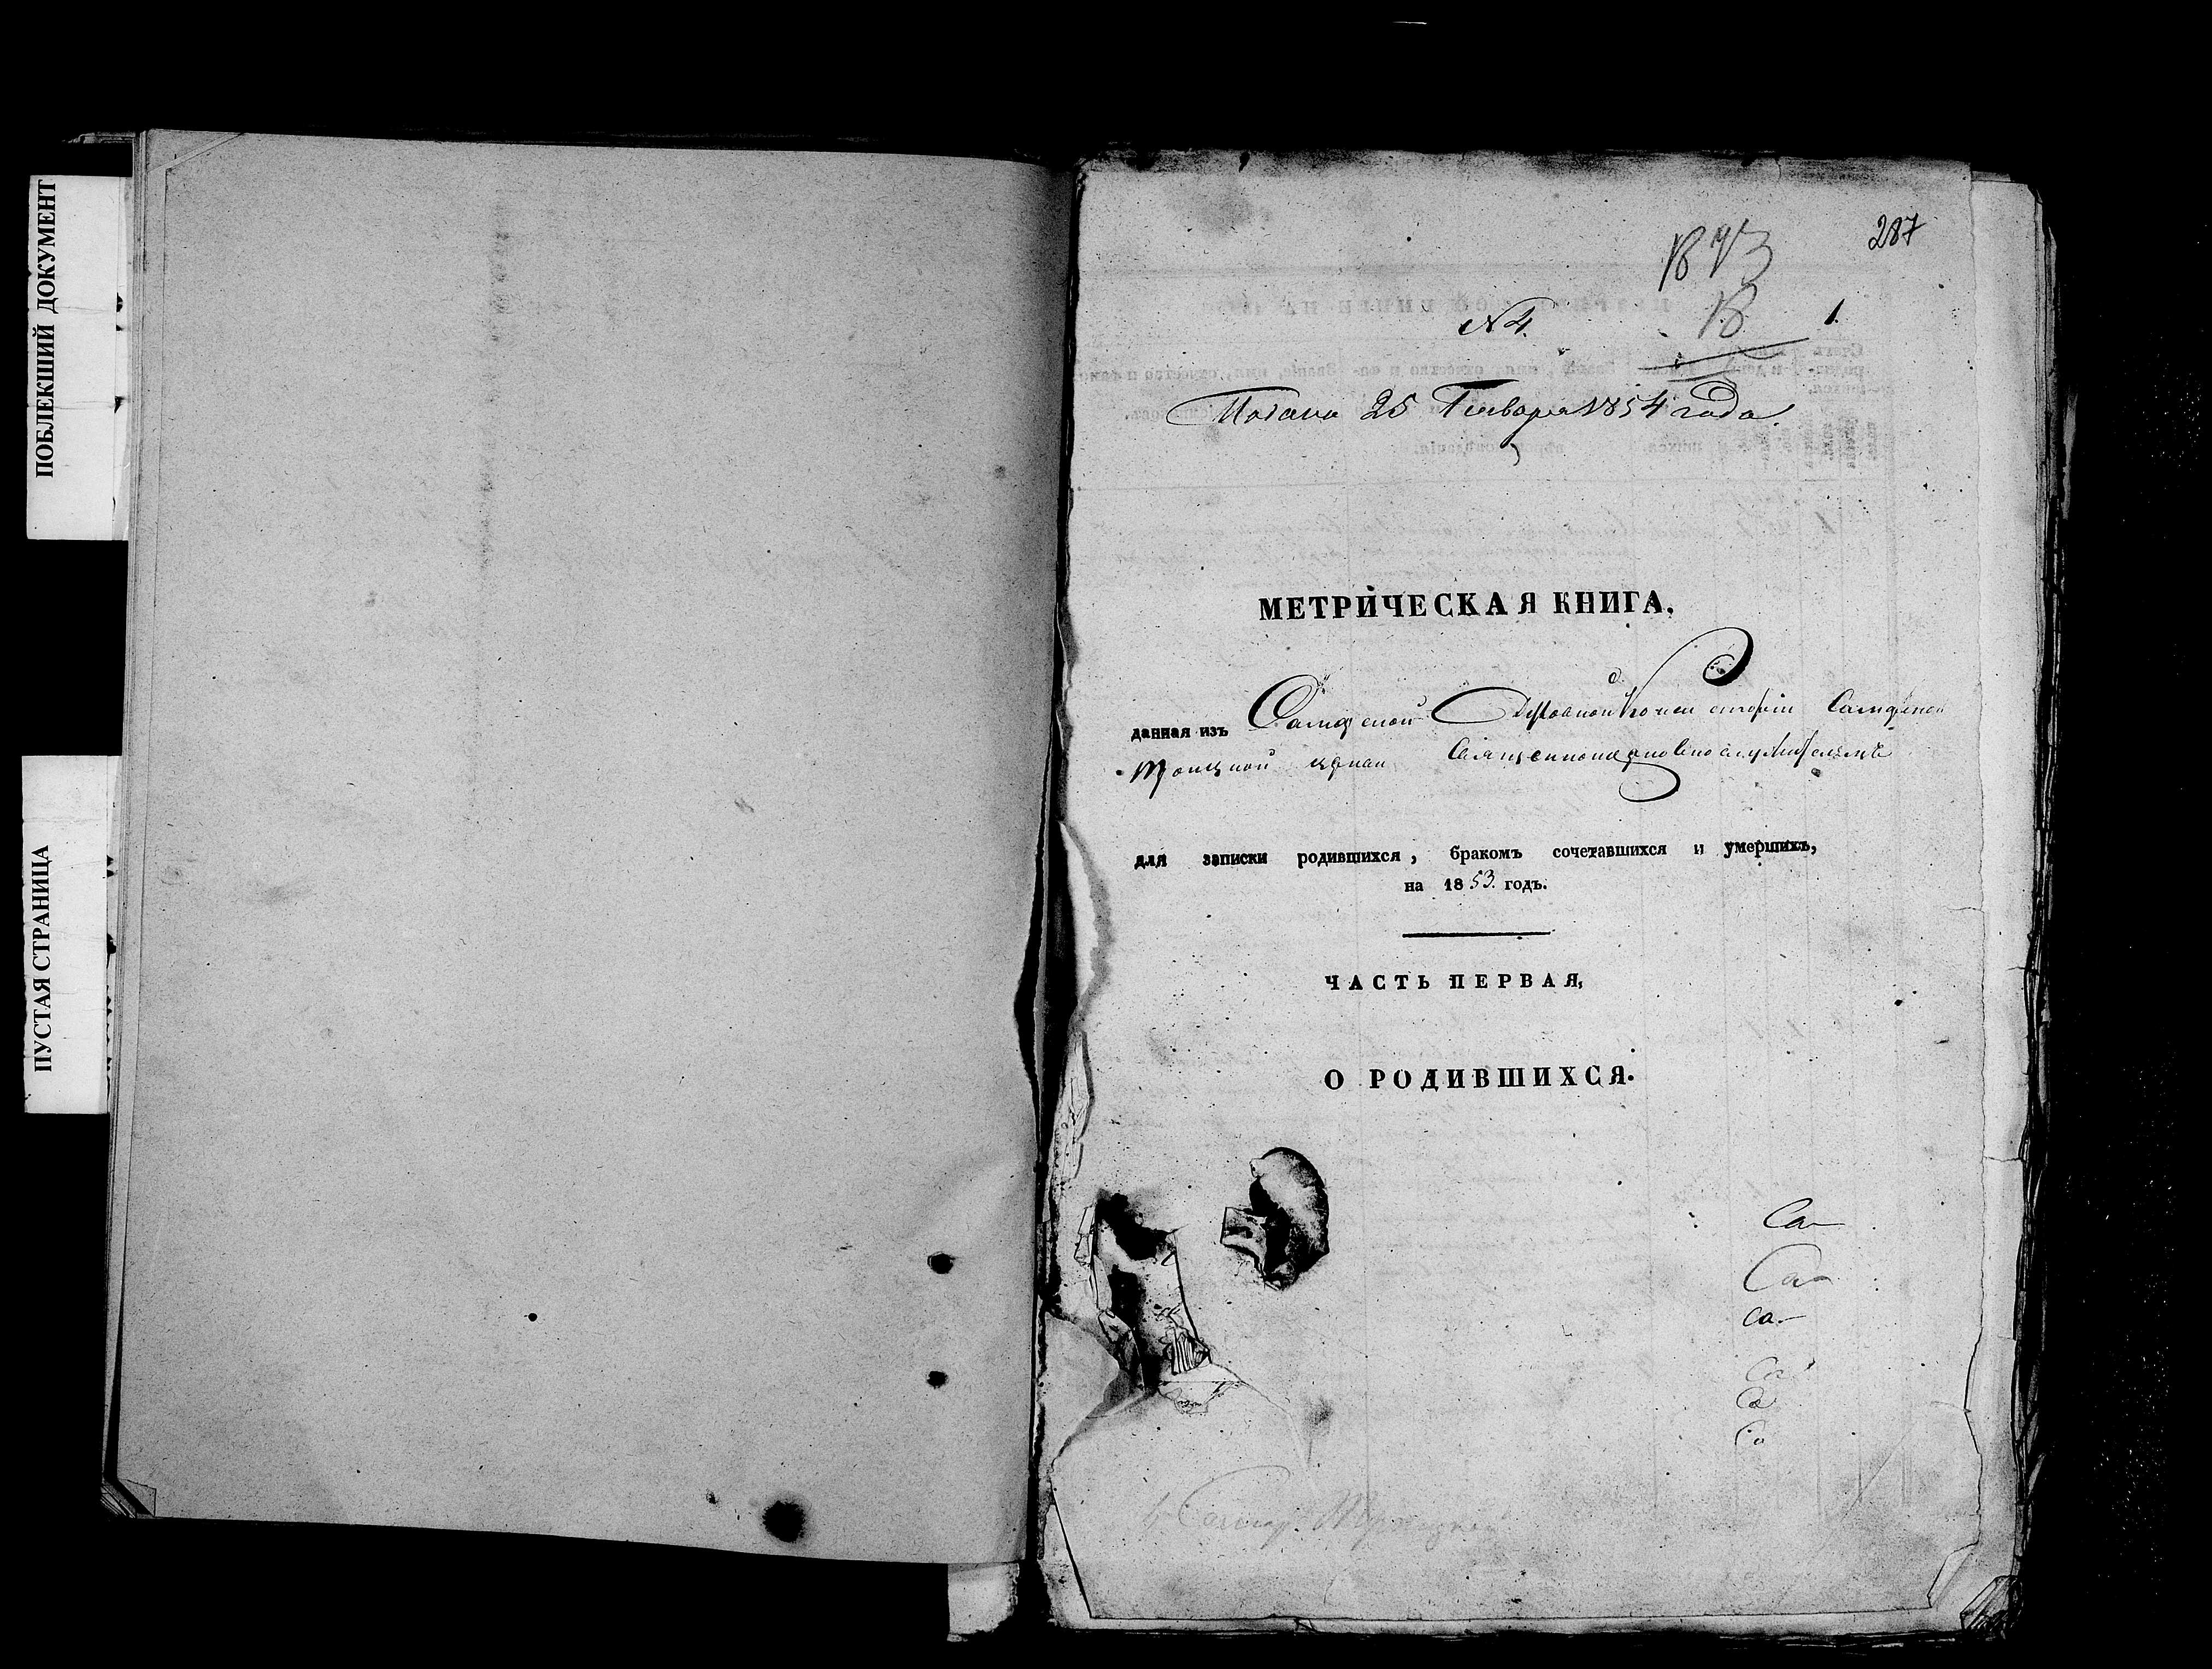 ПОБЛЕКШИЙ ДОКУМЕНТ
ПУСТАЯ СТРАНИЦА
287
1873
18
1.
№ 4.
Подана 25 Генваря 1854 года.
МЕТРИЧЕСКАЯ КНИГА,
данная изъ Самарской Духовной Консисторіи Самарской
Троицкой церкви Священноцерковнослужителямъ
для записки родившихся, бракомъ сочетавшихся и умершихъ,
на 1853. годъ.
ЧАСТЬ ПЕРВАЯ,
О РОДИВШИХСЯ.
Са
Са
са
Са
Са
Са
Самар. Троицкой